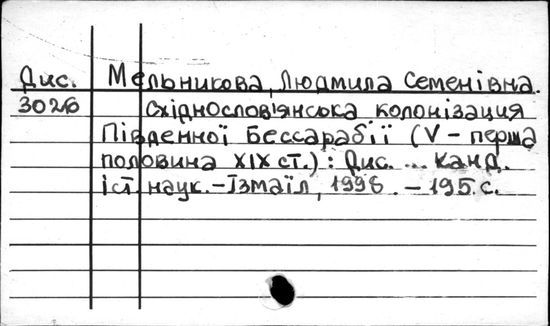 Дис. Мельникова, Людмила Семенівна.
3026 Східнослов'янська колонізация
Південної Бессарабії (V – перша
половина XIX ст.): Дис. ... канд.
іст. наук. – Ізмаїл, 1998. – 195 с.